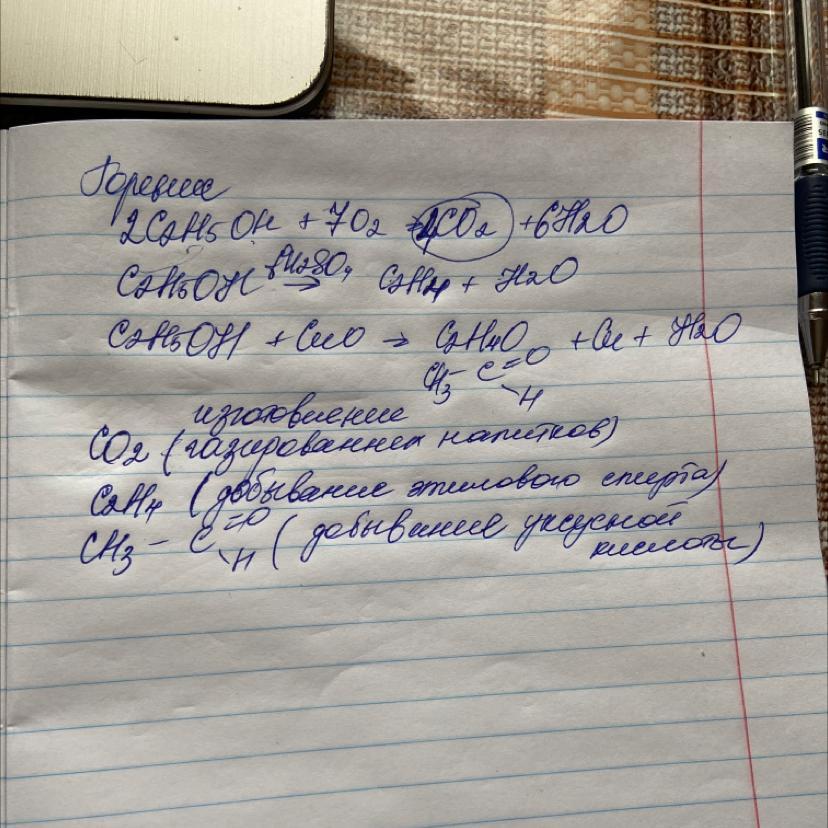 Горение
2C2H5OH + 7O2 → 4CO2 + 6H2O
C2H5OH H2SO4 → C2H4 + H2O
C2H5OH + CuO → C2H4O + Cu + H2O
CH3 - C = O
H
изготовление
CO2 (газированных напитков)
C2H4 (добывание этилового спирта)
CH3 - C = O
H (добывание уксусной
кислоты)